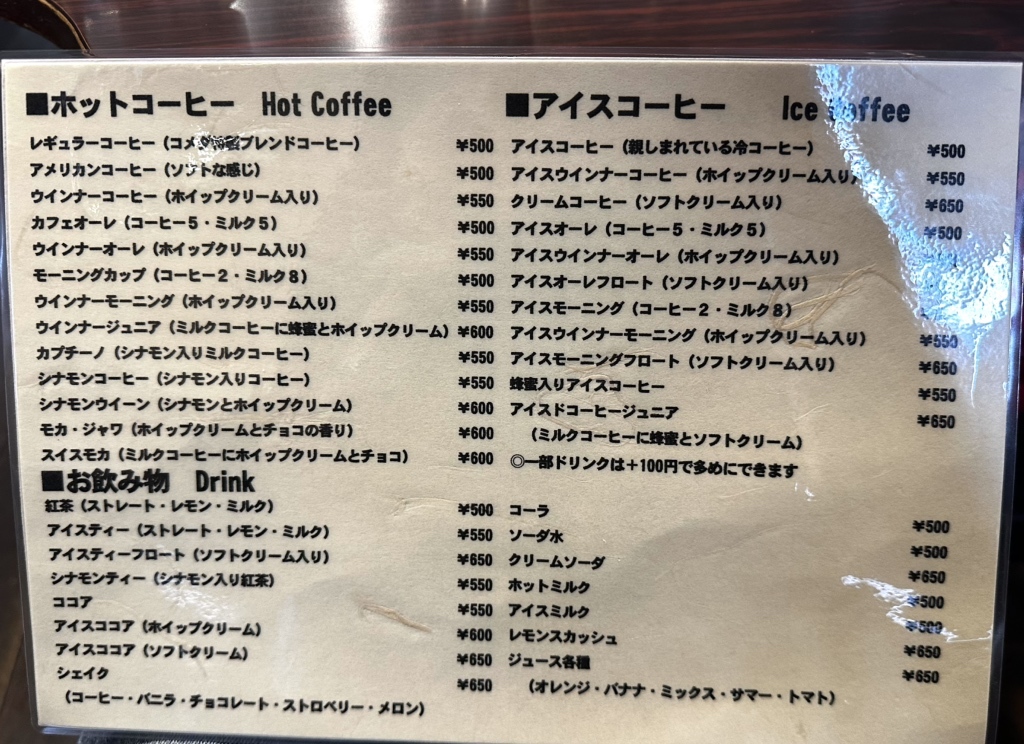 ■ホットコーヒー Hot Coffee
レギュラーコーヒー（コメ ブレンドコーヒー） ¥500
アメリカンコーヒー（ソフトな感じ） ¥500
ウインナーコーヒー（ホイップクリーム入り） ¥550
カフェオーレ（コーヒー５・ミルク５） ¥500
ウインナーオーレ（ホイップクリーム入り） ¥550
モーニングカップ（コーヒー２・ミルク８） ¥500
ウインナーモーニング（ホイップクリーム入り） ¥550
ウインナージュニア（ミルクコーヒーに蜂蜜とホイップクリーム） ¥600
カプチーノ（シナモン入りミルクコーヒー） ¥550
シナモンコーヒー（シナモン入りコーヒー） ¥550
シナモンウイーン（シナモンとホイップクリーム） ¥600
モカ・ジャワ（ホイップクリームとチョコの香り） ¥600
スイスモカ（ミルクコーヒーにホイップクリームとチョコ） ¥600
■アイスコーヒー Ice Coffee
アイスコーヒー（親しまれている冷コーヒー） ¥500
アイスウインナーコーヒー（ホイップクリーム入り） ¥550
クリームコーヒー（ソフトクリーム入り） ¥650
アイスオーレ（コーヒー５・ミルク５） ¥500
アイスウインナーオーレ（ホイップクリーム入り）
アイスオーレフロート（ソフトクリーム入り）
アイスモーニング（コーヒー２・ミルク８）
アイスウインナーモーニング（ホイップクリーム入り） ¥550
アイスモーニングフロート（ソフトクリーム入り） ¥650
蜂蜜入りアイスコーヒー ¥550
アイスドコーヒージュニア ¥650
（ミルクコーヒーに蜂蜜とソフトクリーム）
◎一部ドリンクは＋100円で多めにできます
■お飲み物 Drink
紅茶（ストレート・レモン・ミルク） ¥500
アイスティー（ストレート・レモン・ミルク） ¥550
アイスティーフロート（ソフトクリーム入り） ¥650
シナモンティー（シナモン入り紅茶） ¥550
ココア ¥550
アイスココア（ホイップクリーム） ¥600
アイスココア（ソフトクリーム） ¥650
シェイク ¥650
（コーヒー・バニラ・チョコレート・ストロベリー・メロン）
コーラ ¥500
ソーダ水 ¥500
クリームソーダ ¥650
ホットミルク ¥500
アイスミルク ¥500
レモンスカッシュ ¥650
ジュース各種 ¥650
（オレンジ・バナナ・ミックス・サマー・トマト）